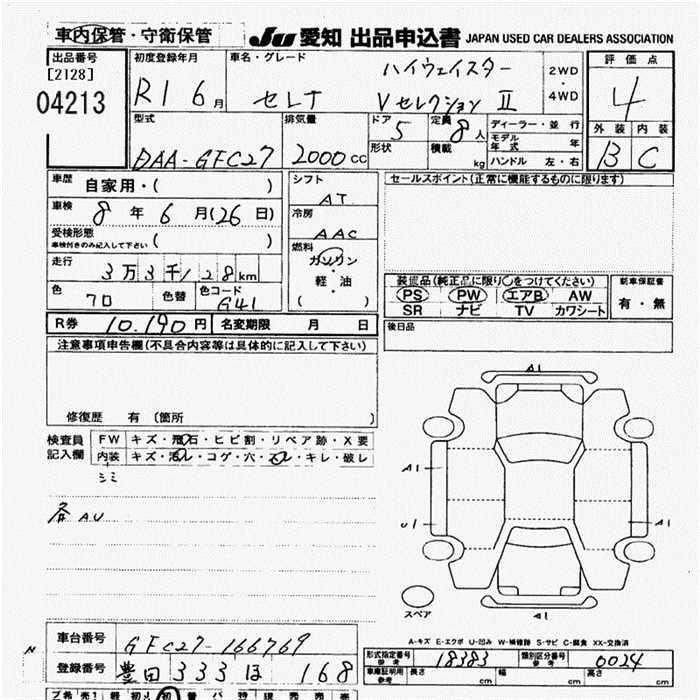 車内保管・守衛保管
JU 愛知 出品申込書 JAPAN USED CAR DEALERS ASSOCIATION
出品番号
[2128]
04213
初度登録年月
R1 6月
車名・グレード
セレナ
ハイウェイスター
Vセレクション Ⅱ
2WD
・
4WD
評価点
4
外装 内装
B C
型式
DAA-GFC27
排気量
2000cc
ドア 5
形状
定員 8人
積載 kg
ディーラー・並行
モデル年式 年
ハンドル 左・右
車歴
自家用・( )
車検
8年 6月(26日)
受検形態
車検付きのみ記入して下さい ( )
走行
3万3千128km
色 クロ 色替 色コード G41
シフト
AT
冷房
AAC
燃料
ガソリン
軽・油
( )
セールスポイント(正常に機能するものに限ります)
装備品(純正品に限り○をつけてください)
PS PW エアB AW
SR ナビ TV カワシート
新車保証書
有・無
後日品
R券 10.190円 名変期限 月 日
注意事項申告欄(不具合内容等は具体的に記入して下さい)
修復歴 有 (箇所 )
検査員
記入欄
FW キズ・飛石・ヒビ割・リペア跡・X要
内装 キズ・汚レ・コゲ・穴・スレ・キレ・破レ
シミ
各AU
A1
A1
U1
A1
A1
スペア
A-キズ E-エクボ U-凹み W-補修跡 S-サビ C-腐食 XX-交換済
N
車台番号 GFC27-166769
登録番号 豊田 333 ほ 168
形式指定番号 参考 18383 類別区分番号 参考 0024
車庫証明用 参考 長さ cm 幅 cm 高さ cm